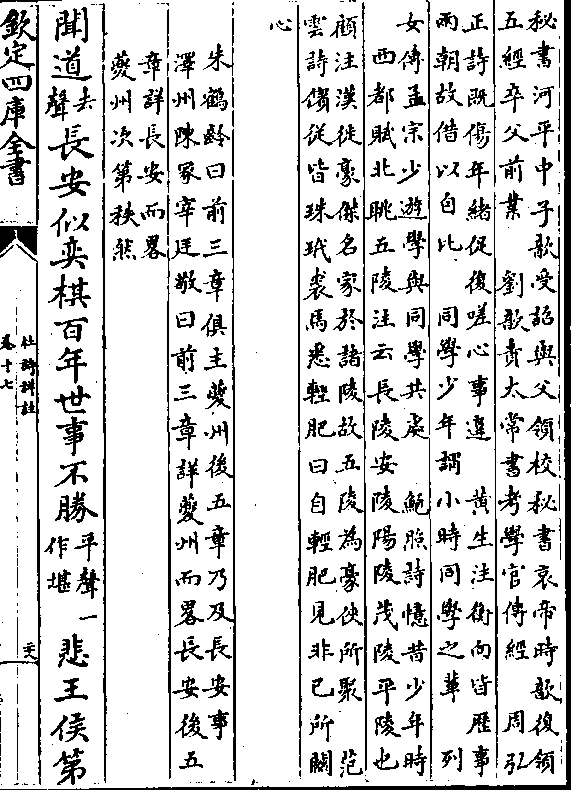 秘書河平中子歆受詔與父領校秘書哀帝時歆復領
五經卒父前業　劉歆責太常書考學官傳經　周弘
正詩既傷年緒促復嗟心事違　黄生注衡向皆歴事
兩朝故借以自比　同學少年謂小時同學之軰　列
女傳孟宗少遊學與同學共處　鮑照詩憶昔少年時
西都賦北眺五陵注云長陵安陵陽陵茂陵平陵也
顧注漢徙豪傑名家於諸陵故五陵為豪俠所聚　范
雲詩儐從皆珠玳裘馬悉輕肥曰自輕肥見非已所關
心
朱鶴齡曰前三章俱主夔州後五章乃及長安事
澤州陳冡宰廷敬曰前三章詳夔州而畧長安後五
章詳長安而畧
夔州次第秩然
聞道去聲長安似奕棋百年世事不勝平聲一作堪悲王侯第
欽定四庫全書
杜詩詳註
卷十七